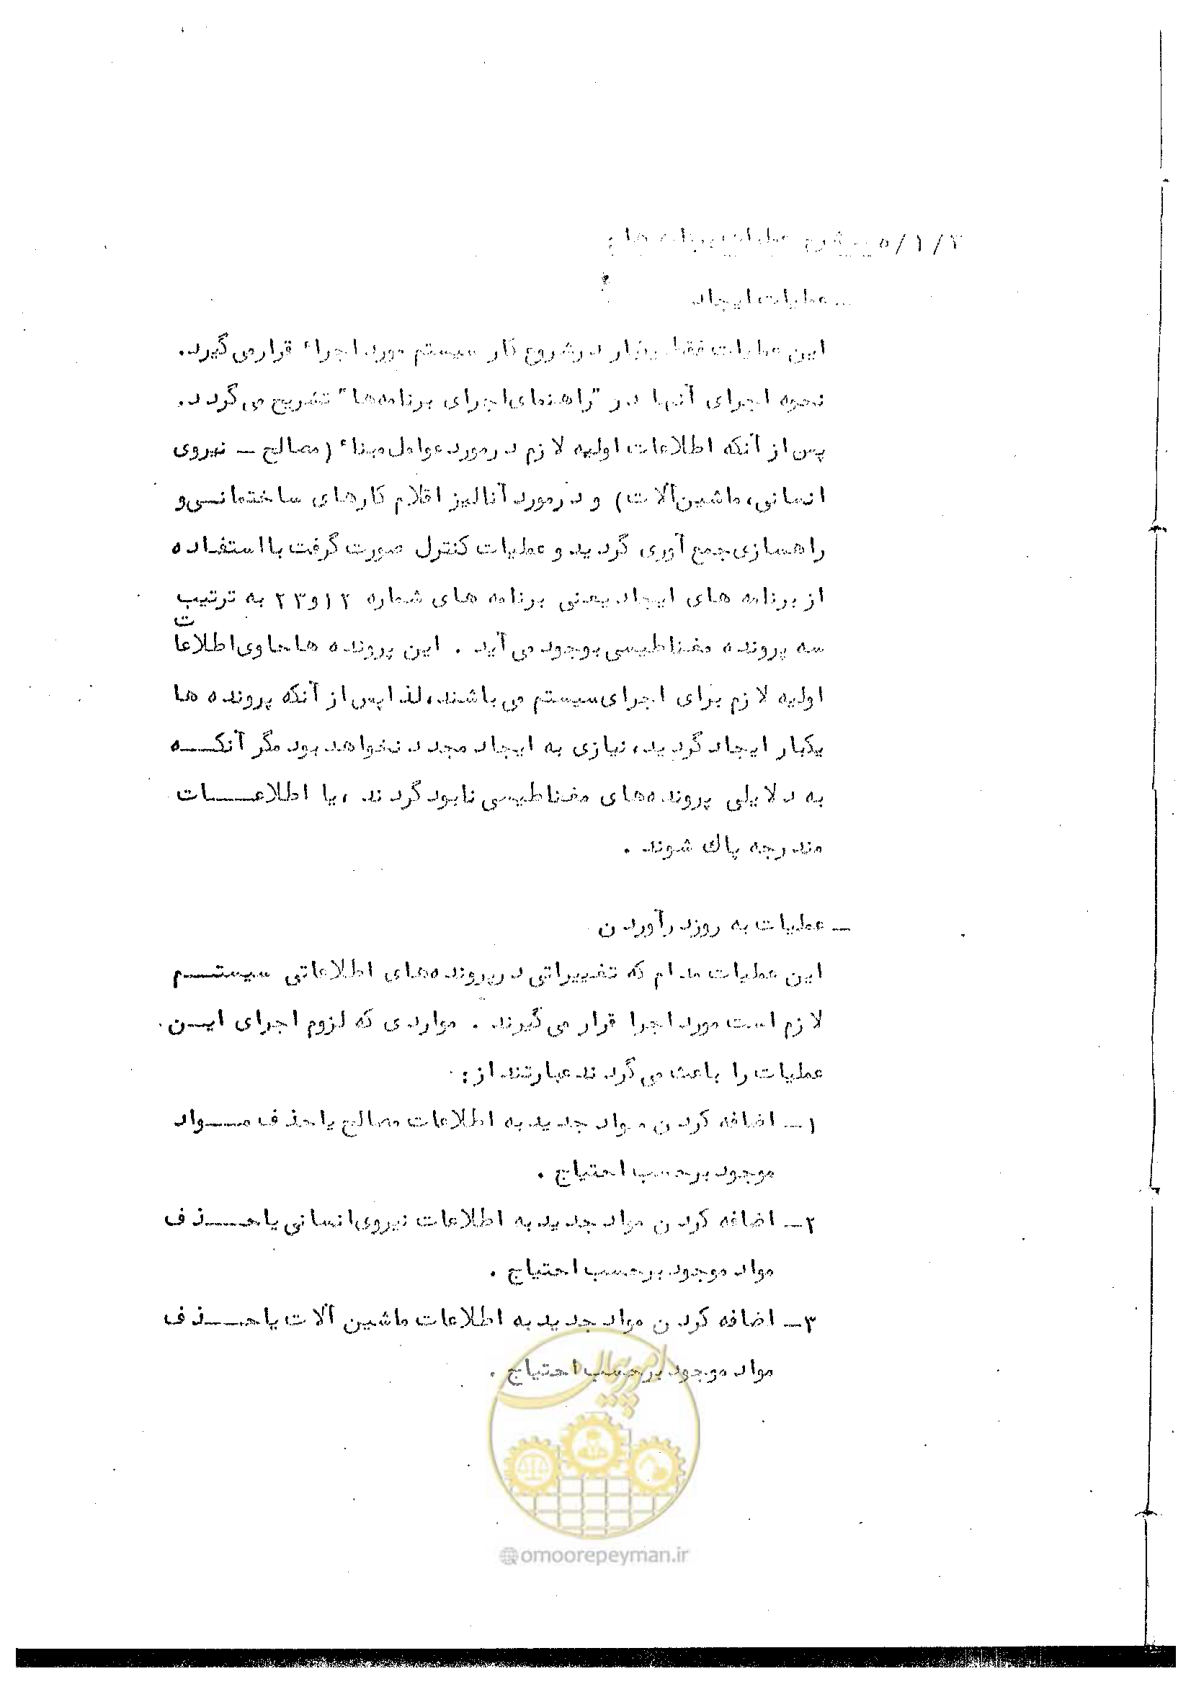 ۳/۱/۵ـ شرح عملیات برنامه های
ـ عملیات ایجاد
این عملیات فقط یکبار در شروع کار سیستم مورد اجراء قرار می گیرد.
نحوه اجرای آنها در "راهنمای اجرای برنامه‌ها" تشریح می گردد.
پس از آنکه اطلاعات اولیه لازم در مورد عوامل مبناء (مصالح ـ نیروی
انسانی، ماشین‌آلات) و در مورد آنالیز اقلام کارهای ساختمانی و
راهسازی جمع آوری گردید و عملیات کنترل صورت گرفت با استفاده
از برنامه های ایجاد یعنی برنامه های شماره ۱۲ و ۲۳ به ترتیب
سه پرونده مغناطیسی بوجود می آید . این پرونده ها حاوی اطلاعات
اولیه لازم برای اجرای سیستم می باشند، لذا پس از آنکه پرونده ها
یکبار ایجاد گردید، نیازی به ایجاد مجدد نخواهد بود مگر آنکه
به دلایلی پرونده‌های مغناطیسی نابود گردند ، یا اطلاعات
مندرجه پاک شوند .
ـ عملیات به روز در آوردن
این عملیات مدام که تغییراتی در پرونده‌های اطلاعاتی سیستم
لازم است مورد اجرا قرار می گیرند . مواردی که لزوم اجرای این
عملیات را باعث می گردند عبارتند از :
۱ـ اضافه کردن مواد جدید به اطلاعات مصالح یا حذف مواد
موجود بر حسب احتیاج .
۲ـ اضافه کردن مواد جدید به اطلاعات نیروی انسانی یا حذف
مواد موجود بر حسب احتیاج .
۳ـ اضافه کردن مواد جدید به اطلاعات ماشین آلات یا حذف
مواد موجود بر حسب احتیاج .
امور پیمان
@omoorepeyman.ir